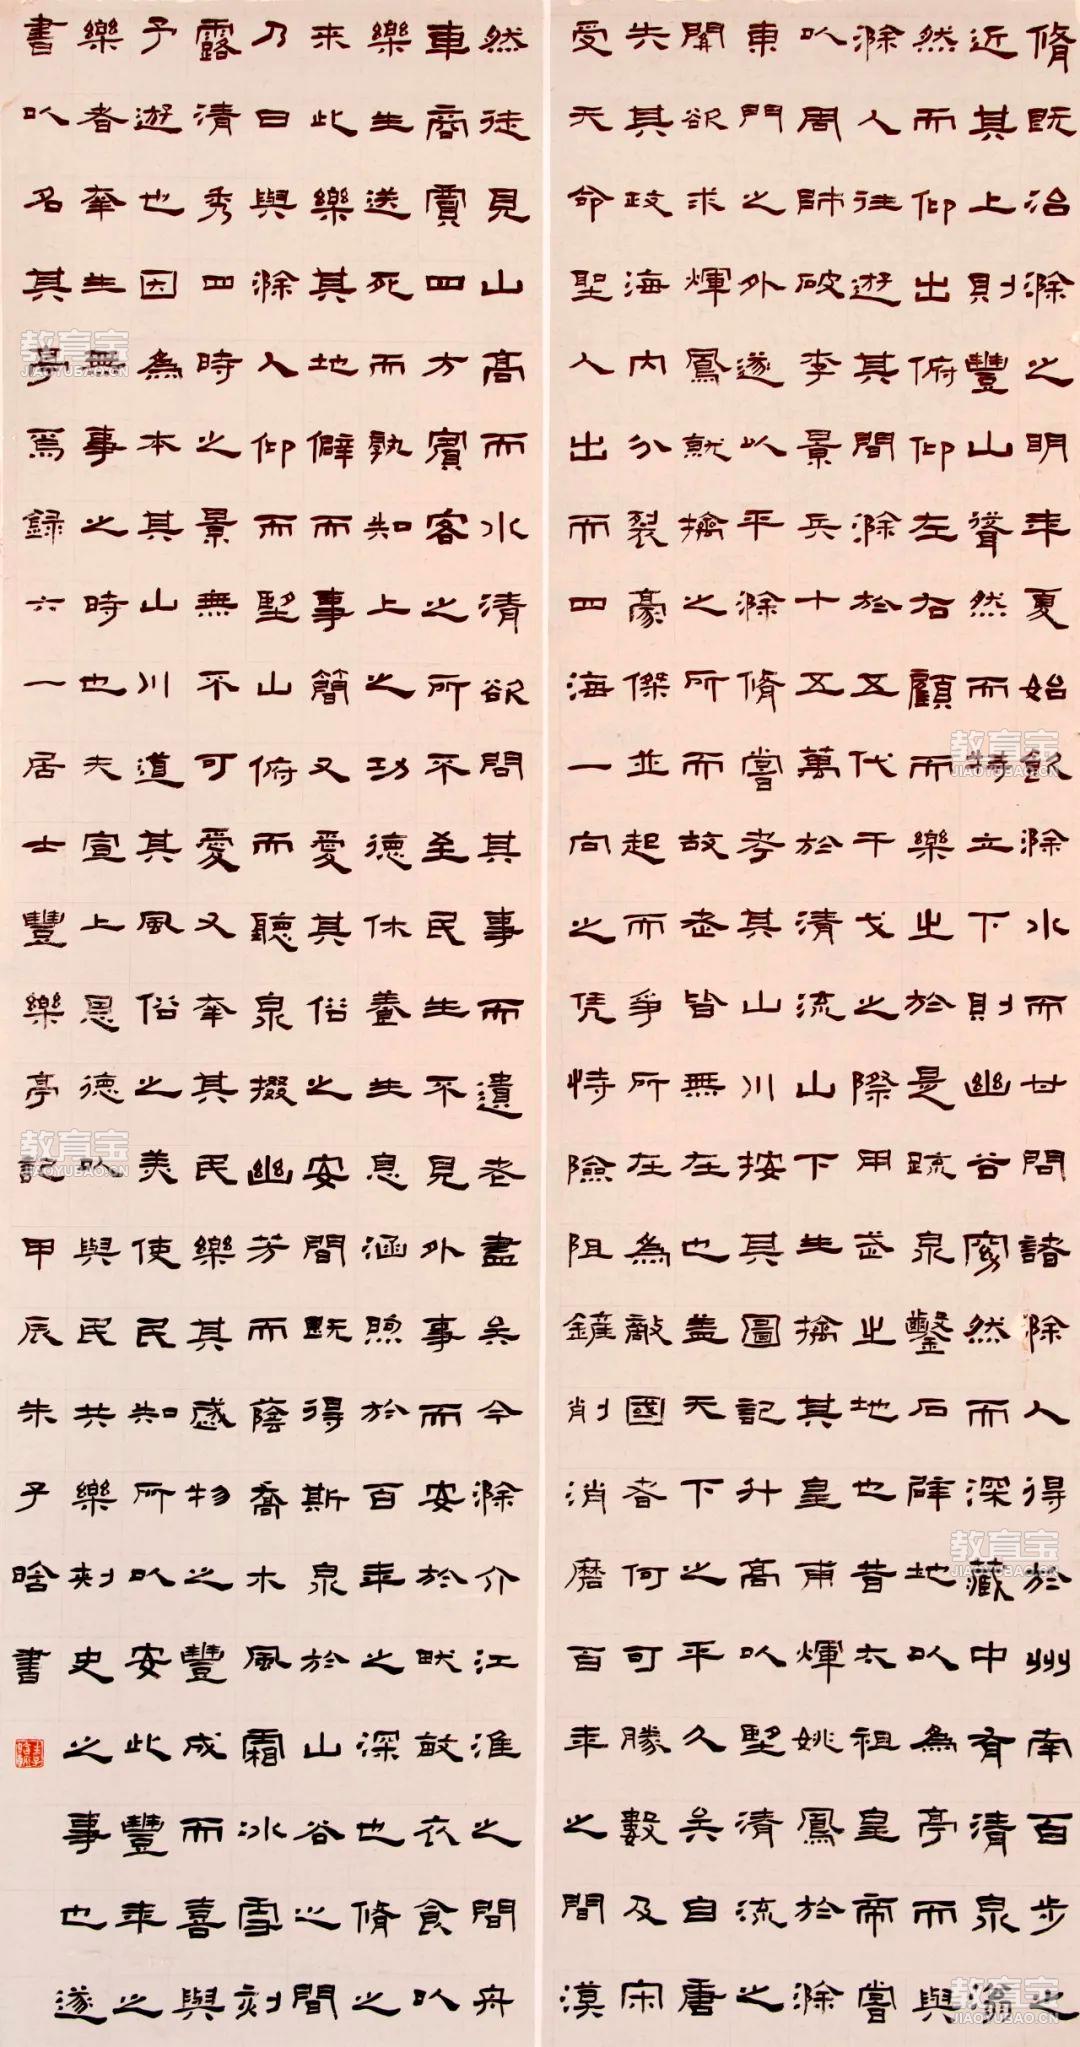 脩既治滁之明年夏始飲滁水而甘問諸滁人得於州南百步之
近其上則豐山聳然而特立下則幽谷窈然而深藏中有清泉滃
然而仰出俯仰左右顧而樂之於是疏泉鑿石辟地以為亭而與
滁人往遊其間滁於五代干戈之際用武之地也昔太祖皇帝嘗
以周師破李景兵十五萬於清流山下生擒其皇甫煇姚鳳於滁
東門之外遂以平滁脩嘗考其山川按其圖記升高以望清流之
關欲求煇鳳就擒之所而故老皆無在也蓋天下之平久矣自唐
失其政海內分裂豪傑並起而爭所在為敵國者何可勝數及宋
受天命聖人出而四海一向之凭恃險阻鏟削消磨百年之間漠
然徒見山高而水清欲問其事而遺老盡矣今滁介江淮之間舟
車商賈四方賓客之所不至民生不見外事而安於畎畝衣食以
樂生送死而孰知上之功德休養生息涵煦於百年之深也脩之
來此樂其地僻而事簡又愛其俗之安間既得斯泉於山谷之間
乃日與滁人仰而望山俯而聽泉掇幽芳而蔭喬木風霜冰雪刻
露清秀四時之景無不可愛又幸其民樂其歲物之豐成而喜與
予遊也因為本其山川道其風俗之美使民知所以安此豐年之
樂者幸生無事之時也夫宣上恩德以與民共樂刺史之事也遂
書以名其亭焉錄六一居士豐樂亭記甲辰朱子啥書
教育宝
JIAOYUBAO.CN
教育宝
JIAOYUBAO.CN
教育宝
JIAOYUBAO.CN
教育宝
JIAOYUBAO.CN
教育宝
JIAOYUBAO.CN